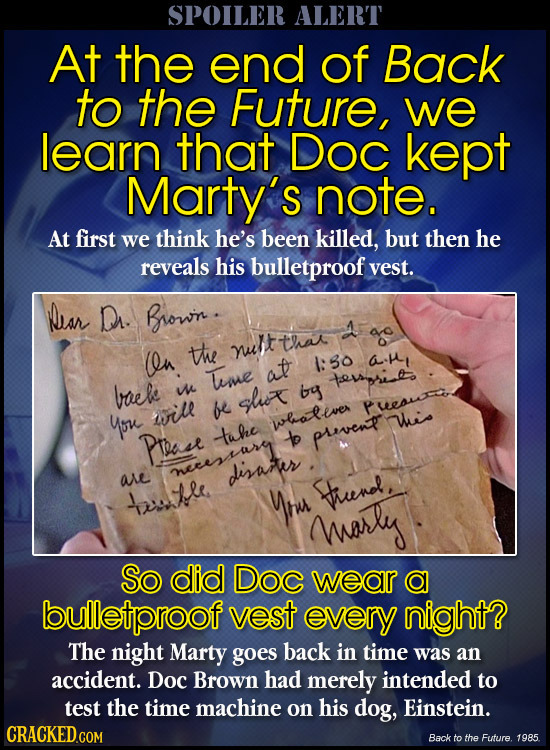 SPOILER ALERT
At the end of Back
to the Future, we
learn that Doc kept
Marty's note.
At first we think he's been killed, but then he
reveals his bulletproof vest.
Dear Dr. Brown.
On the night that I go
back in Time at 1:30 A.M,
you will be shot by terrorists
Please take whatever precautions
are necessary to prevent this
terrible disaster.
Your friend,
Marty.
So did Doc wear a
bulletproof vest every night?
The night Marty goes back in time was an
accident. Doc Brown had merely intended to
test the time machine on his dog, Einstein.
CRACKED.COM
Back to the Future. 1985.